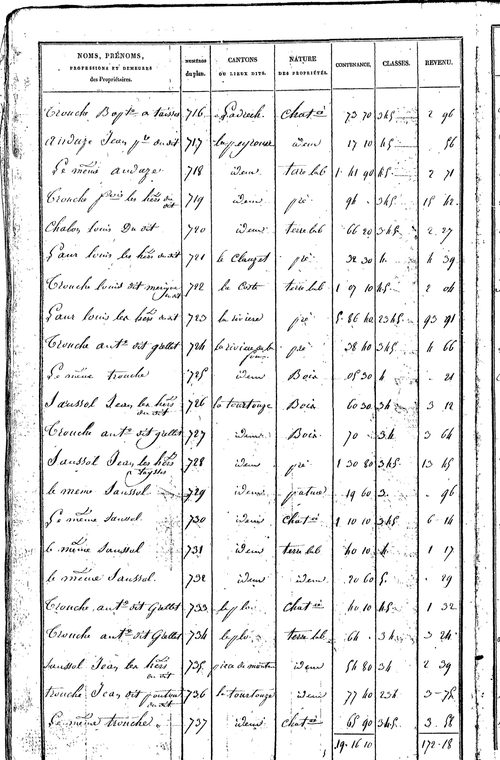 NOMS, PRÉNOMS, PROFESSIONS ET DEMEURES des Propriétaires. NUMÉROS du plan. CANTONS OU LIEUX DITS. NATURE DES PROPRIÉTÉS. CONTENANCE. CLASSES. REVENU.
Trouche Bapte a taisses 716 Ladrech Chatie 73 70 3 4 5 2 96
Andaze Jean 717 lapeyrouse idem 17 10 4 5 56
Le même andaze 718 idem terre lab 1 41 90 4 5 2 71
Trouche les hers du dit 719 idem pré 94 3 4 5 15 42
Chalon louis Du dit 720 idem terre lab 66 20 3 4 5 2 27
Laur louis les hers du dit 721 le Clauzet pré 32 30 4 4 39
Trouche louis dit du dit 722 la Coste terre lab 1 07 10 4 5 2 04
Laur louis les hers du dit 723 la riviere pré 5 86 40 2 3 4 5 93 91
Trouche ante dit grellet 724 la riviere pré 38 40 3 4 5 4 66
Le même trouche 725 idem Bois 05 30 4 21
Saussol Jean les hers du dit 726 la tourtouze Bois 60 30 3 4 3 12
Trouche ante dit grellet 727 idem Bois 70 3 4 3 64
Saussol Jean les hers 728 idem pré 1 30 80 3 4 5 13 45
le meme Saussol 729 idem patus 19 60 3 96
Le même saussol 730 idem Chatie 1 10 10 3 4 5 6 14
le même saussol 731 idem terre lab 40 10 4 1 17
le même Saussol 732 idem idem 20 60 5 29
Trouche ante dit Grellet 733 le plo Chatie 40 10 4 5 1 32
Trouche ante dit Grellet 734 le plo terre lab 64 3 4 3 24
saussol Jean les hers du dit 735 idem 54 80 3 4 2 39
trouche Jean dit du dit 736 la tourtouze idem 77 40 2 3 4 3 75
Le même trouche 737 idem chatie 65 90 3 4 5 3 58
19 16 10 172 18